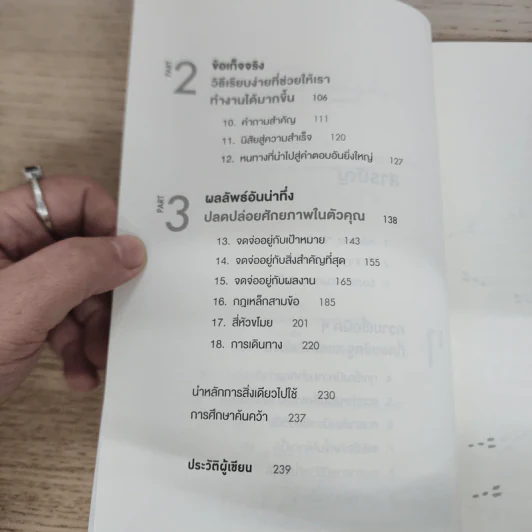 PART 2
ข้อเท็จจริง
วิธีเรียบง่ายที่ช่วยให้เรา
ทำงานได้มากขึ้น 106
10. คำถามสำคัญ 111
11. นิสัยสู่ความสำเร็จ 120
12. หนทางที่นำไปสู่คำตอบอันยิ่งใหญ่ 127
PART 3
ผลลัพธ์อันน่าทึ่ง
ปลดปล่อยศักยภาพในตัวคุณ 138
13. จดจ่ออยู่กับเป้าหมาย 143
14. จดจ่ออยู่กับสิ่งสำคัญที่สุด 155
15. จดจ่ออยู่กับผลงาน 165
16. กฎเหล็กสามข้อ 185
17. สี่หัวขโมย 201
18. การเดินทาง 220
นำหลักการสิ่งเดียวไปใช้ 230
การศึกษาค้นคว้า 237
ประวัติผู้เขียน 239